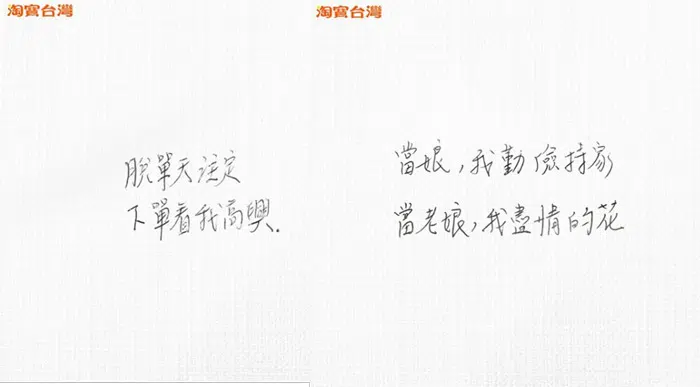 淘寶台灣
脫單天注定
下單看我高興.
淘寶台灣
當娘，我勤儉持家
當老娘，我盡情的花